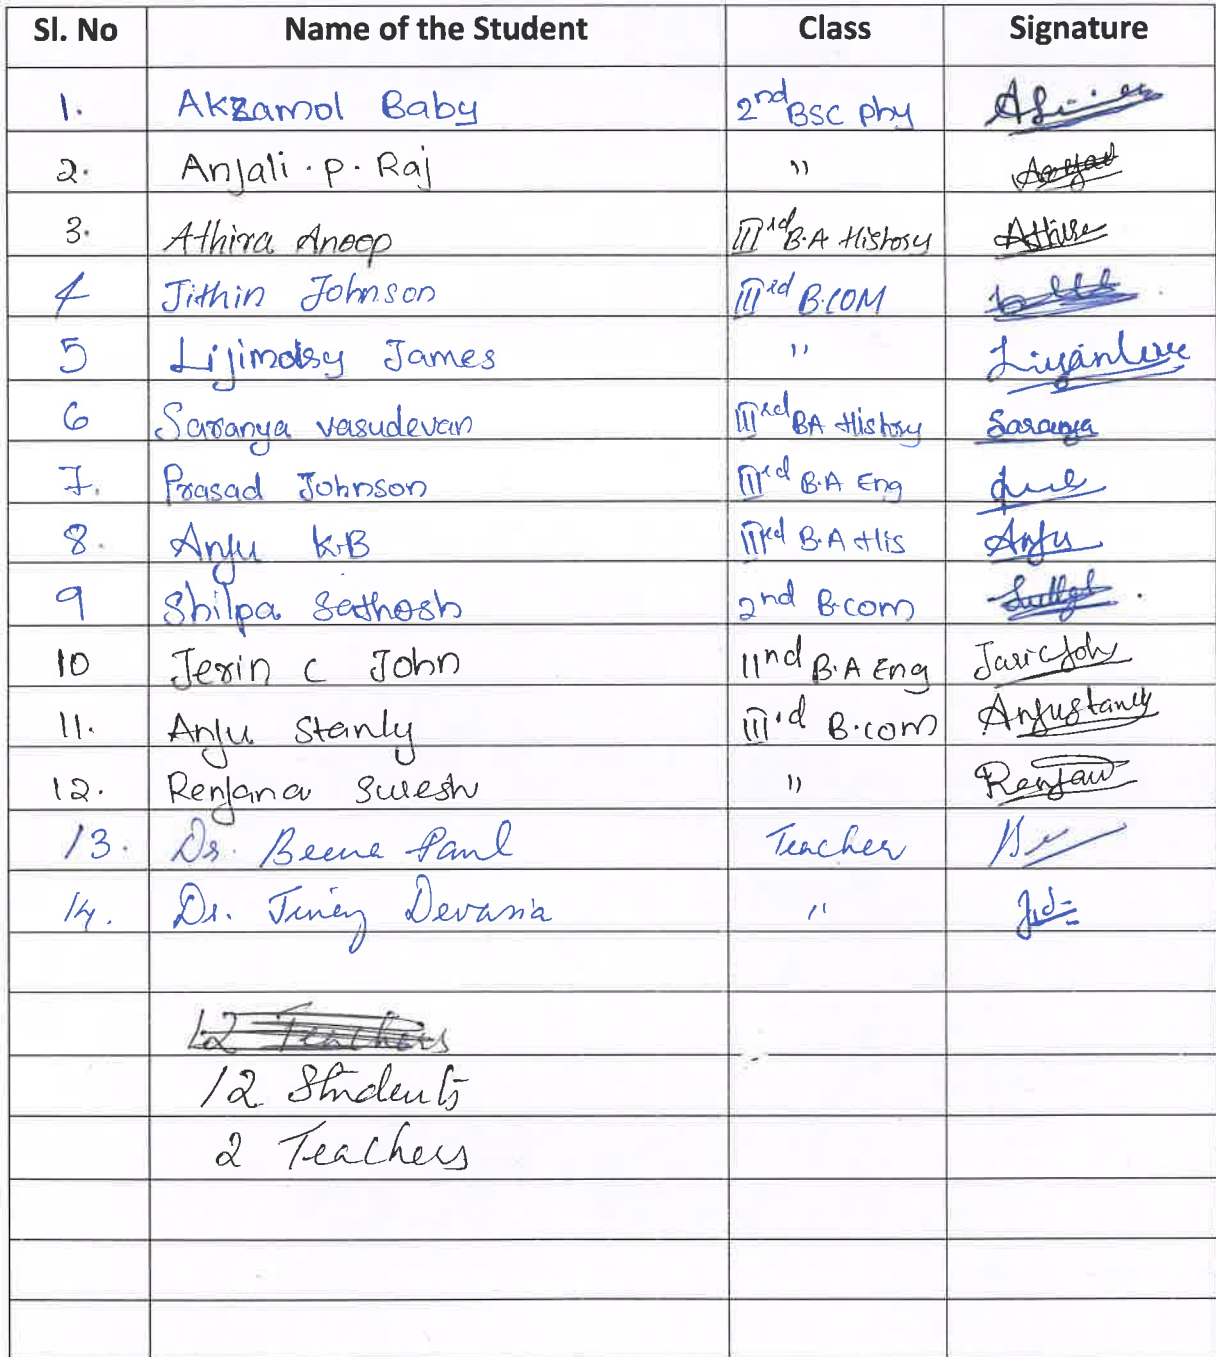 Sl. No Name of the Student Class Signature
1. Akzamol Baby 2nd BSC phy
2. Anjali . p . Raj "
3. Athira Anoop IIIrd B.A History Athira
4 Jithin Johnson IIIrd B.COM
5 Lijimolsy James "
6 Saranya vasudevan IIIrd BA History Saranya
7. Prasad Johnson IIIrd B.A Eng
8. Anju K.B IIIrd B.A His Anju
9 Shilpa Sathosh 2nd B.com
10 Jerin C John IInd B.A Eng
11. Anju Stanly IIIrd B.com Anjustanly
12. Renjana Suresh "
13. Dr. Beena Paul Teacher
14. Dr. Devasia "
12 Teachers
12 Students
2 Teachers